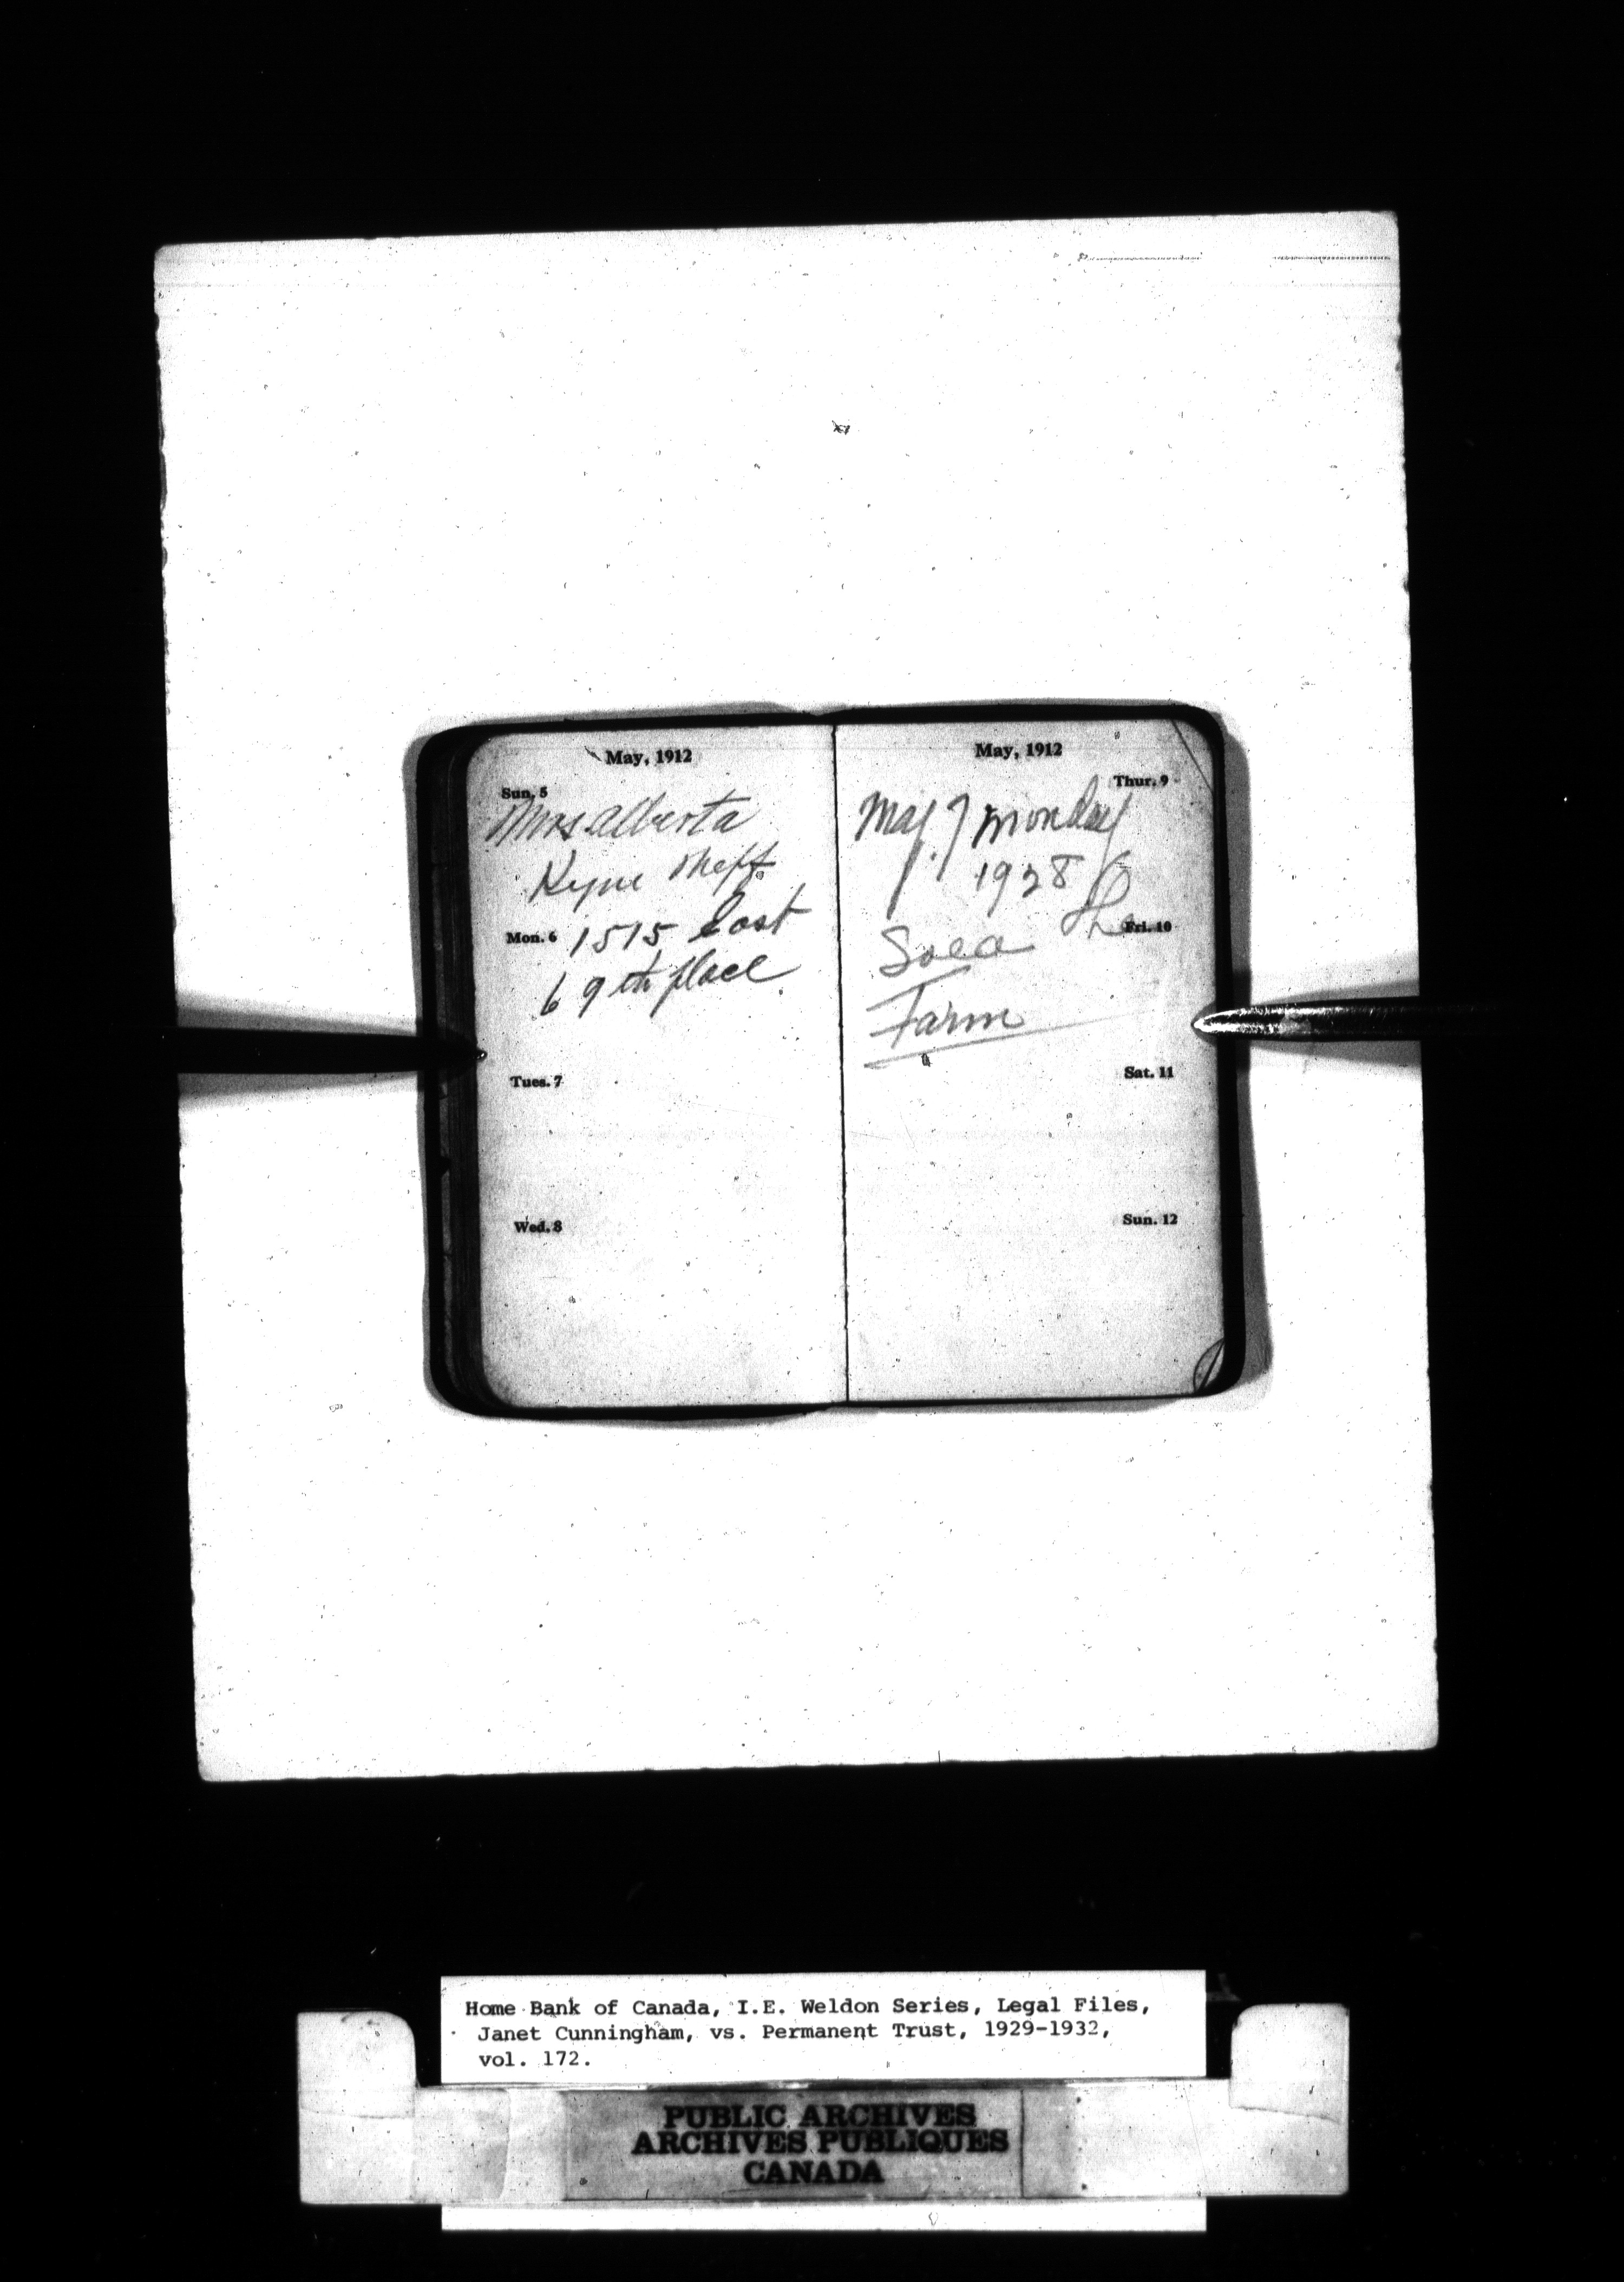 May, 1912
Sun. 5
Mrs Alberta
Kyne Neff
Mon. 6 1515 East
69th place
Tues. 7
Wed. 8
May, 1912
Thur. 9
May 7 monday
1928
Sold The
Fri. 10
Farm
Sat. 11
Sun. 12
Home Bank of Canada, I.E. Weldon Series, Legal Files,
Janet Cunningham, vs. Permanent Trust, 1929-1932,
vol. 172.
PUBLIC ARCHIVES
ARCHIVES PUBLIQUES
CANADA